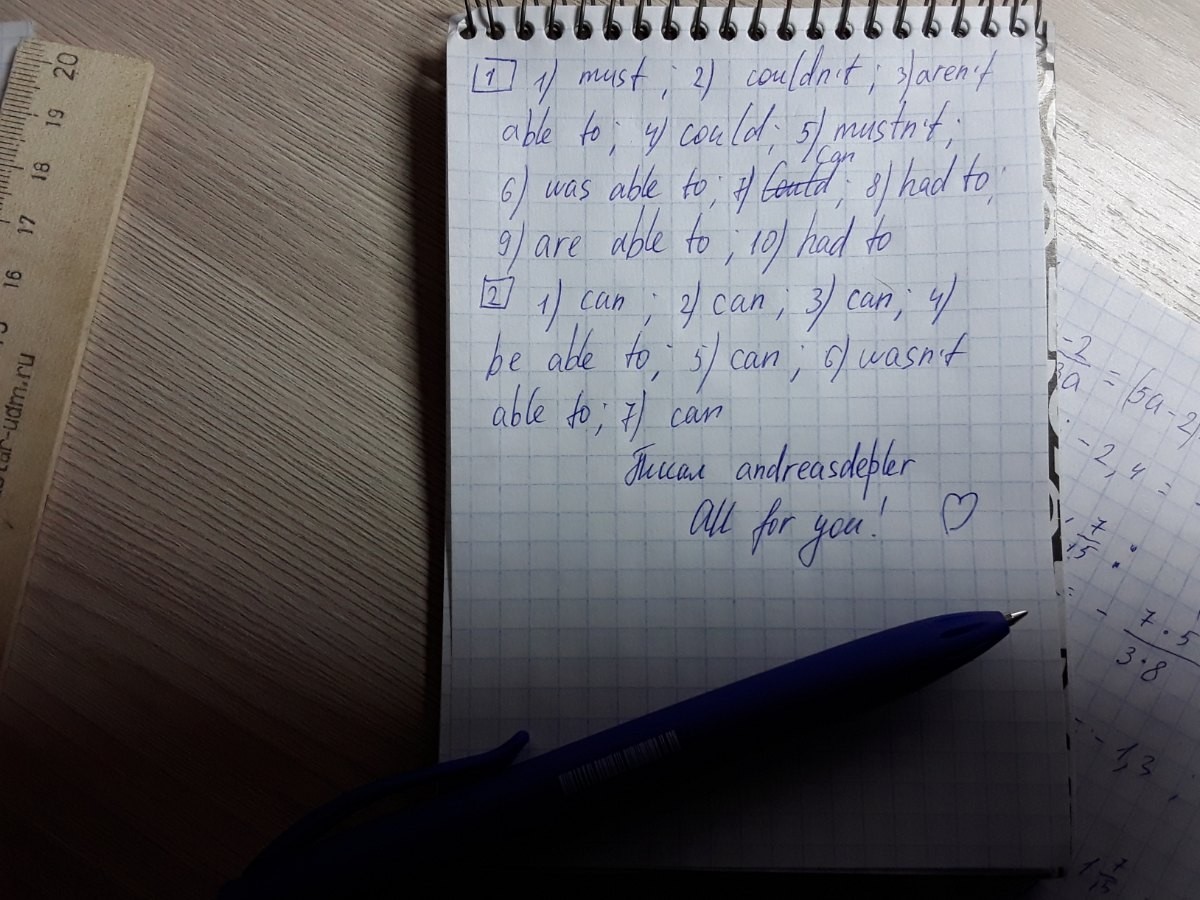 20
19
18
17
16
1 1) must; 2) couldn't; 3) aren't
able to; 4) could; 5) mustn't;
can
6) was able to; 7) could; 8) had to;
9) are able to; 10) had to
2 1) can; 2) can; 3) can; 4)
be able to; 5) can; 6) wasn't
able to; 7) can
Писал andreasdepler
All for you! ♡
-2
3a = (5a-2)
-2,4 =
7
15 :
= - 7·5
3·8
-1,3
1 7
15